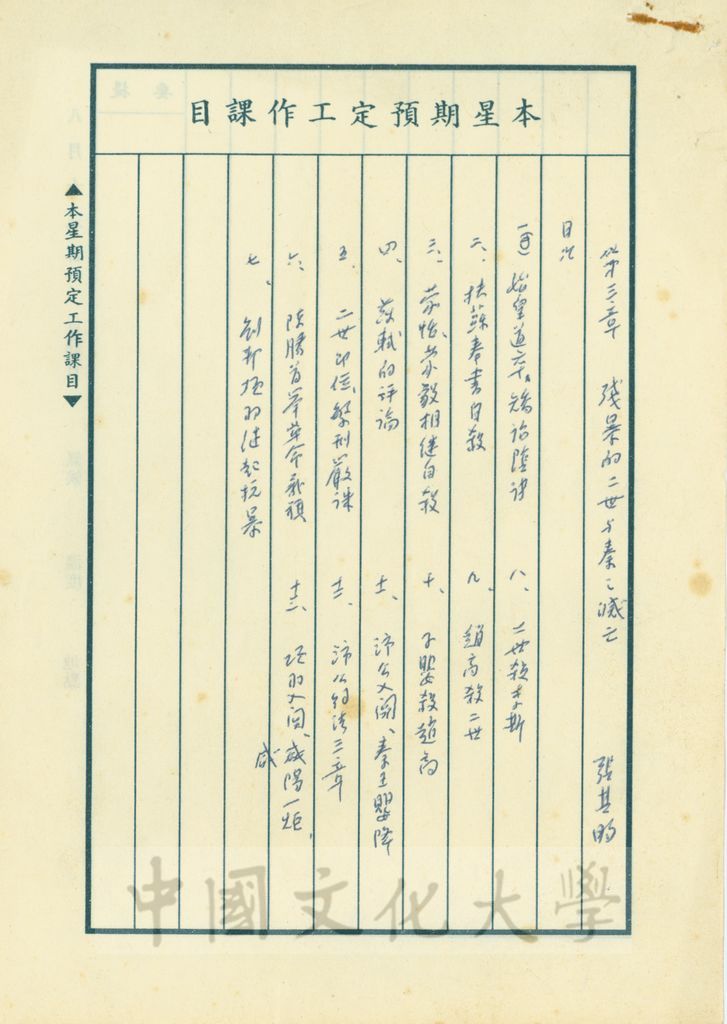 本星期預定工作課目
第三章 殘暴的二世与秦之滅亡 張其昀
目次
一、始皇道卒、矯詔陰謀
二、扶蘇奉書自殺
三、蒙恬、蒙毅相继自殺
四、蘇軾的評論
五、二世即位、繁刑嚴誅
六、陳勝首举革命義旗
七、劉邦項羽继起抗暴
八、二世殺李斯
九、趙高殺二世
十、子嬰殺趙高
十一、沛公入關、秦王嬰降
十二、沛公約法三章
十三、项羽入関、咸陽一炬
咸
▲本星期預定工作課目▼
中國文化大學